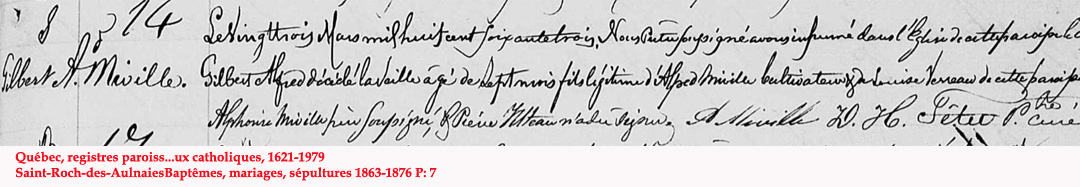 S 14
Gilbert A. Miville.
Le vingt trois Mars mil huit cent soixante trois, Nous Prêtre soussigné avons inhumé dans l'Eglise de cette paroisse le corps
Gilbert Alfred décédé la veille âgé de sept mois fils légitime d'Alfred Miville Cultivateur & de Louise Verreau de cette paroisse
Alphonse Miville père soussigné, & Pierre A Miville D. H. Têtu Ptre Curé
Québec, registres paroiss...ux catholiques, 1621-1979
Saint-Roch-des-AulnaiesBaptêmes, mariages, sépultures 1863-1876 P: 7